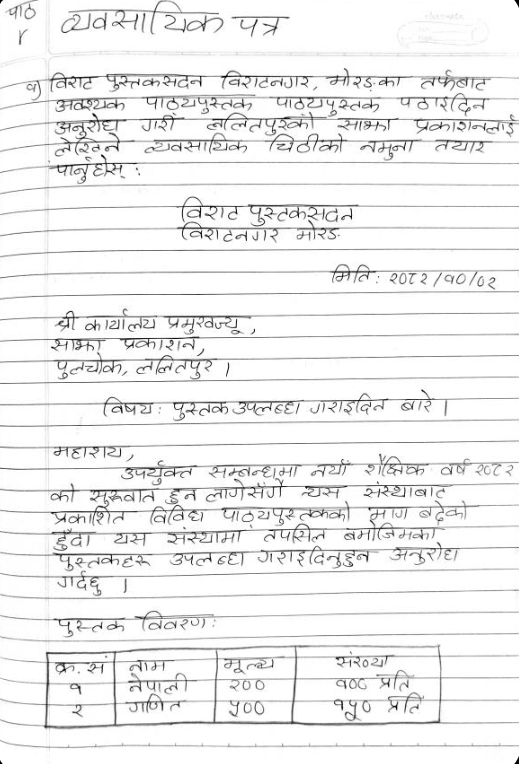 पाठ
४
व्यवसायिक पत्र
क) विराट पुस्तकसदन विराटनगर, मोरङका तर्फबाट
अवश्यक पाठ्यपुस्तक पाठ्यपुस्तक पठाइदिन
अनुरोध गरी ललितपुरको साझा प्रकाशनलाई
लेखिने व्यवसायिक चिठीको नमुना तयार
पार्नुहोस् :
विराट पुस्तकसदन
विराटनगर मोरङ
मिति: २०८२/१०/०२
श्री कार्यालय प्रमुखज्यू,
साझा प्रकाशन,
पुलचोक, ललितपुर ।
विषय: पुस्तक उपलब्ध गराइदिन बारे ।
महाशय,
उपर्युक्त सम्बन्धमा नयाँ शैक्षिक वर्ष २०८२
को सुरुवात हुन लागेसँगै त्यस संस्थाबाट
प्रकाशित विविध पाठ्यपुस्तकको माग बढेको
हुँदा यस संस्थामा तपसिल बमोजिमका
पुस्तकहरू उपलब्ध गराइदिनुहुन अनुरोध
गर्दछु ।
पुस्तक विवरण:
क्र.सं नाम मूल्य संख्या
१ नेपाली २०० १०० प्रति
२ गणित ५०० १५० प्रति